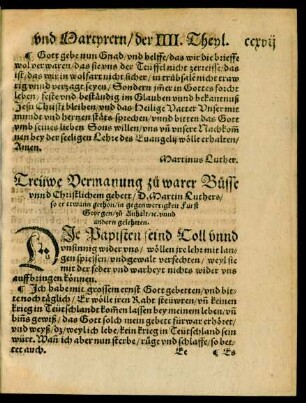 vnd Martyrern/der IIII. Theyl. ccxvij
¶ Gott gebe nun Gnad/vnd helffe/das wir die brieffe
wol verwaren/das sie vns der Teüffel nicht zerreisse/das
ist/das wir in wolfart nicht sicher/in trübsale nicht traw
rig vnnd verzagt seyen/Sondern jm̃er in Gottes forcht
leben/feste vnd bestãndig im Glauben vnnd bekantnuß
Jesu Christi bleiben/vnd das Heilige Vatter Vnser mit
mundt vnd hertzen stäts sprechen/vnnd bitten das Gott
vmb seines lieben Sons willen/vns vñ vnsere Nachkom̃
nen bey der seeligen Lehre des Euangelij wölle erhalten/
Amen.
Martinus Luther.
Treüwe Vermanung zů warer Bůsse
vnnd Christlichem gebett/D. Martin Luthers/
so er etwann gethon/in gegenwertigkeit Fürst
Georgen/zů Anhalt/ꝛc. vnnd
andern geleherten.
DIe Papisten seind Toll vnnd
vnsinnig wider vns/wöllen jre lehr mit lan-
gen spiessen/vnd gewalt verfechten/weyl sie
mit der feder vnd warheyt nichts wider vns
auffbringen können.
¶ Ich habe mit grossem ernst Gott gebetten/vnd bit-
te noch täglich/Er wölle jren Raht steüwren/vñ keinen
krieg in Teütschland kom̃en lassen bey meinem leben/vñ
bin̄s gewiß/das Gott solch mein gebett fürwar erhöret/
vnd weyß/dz/weylich lebe/kein krieg in Teütschland sein
würt. Wañ ich aber nun sterbe/rüge vnd schlaffe/so bet-
tet auch.
Ee ¶ Es